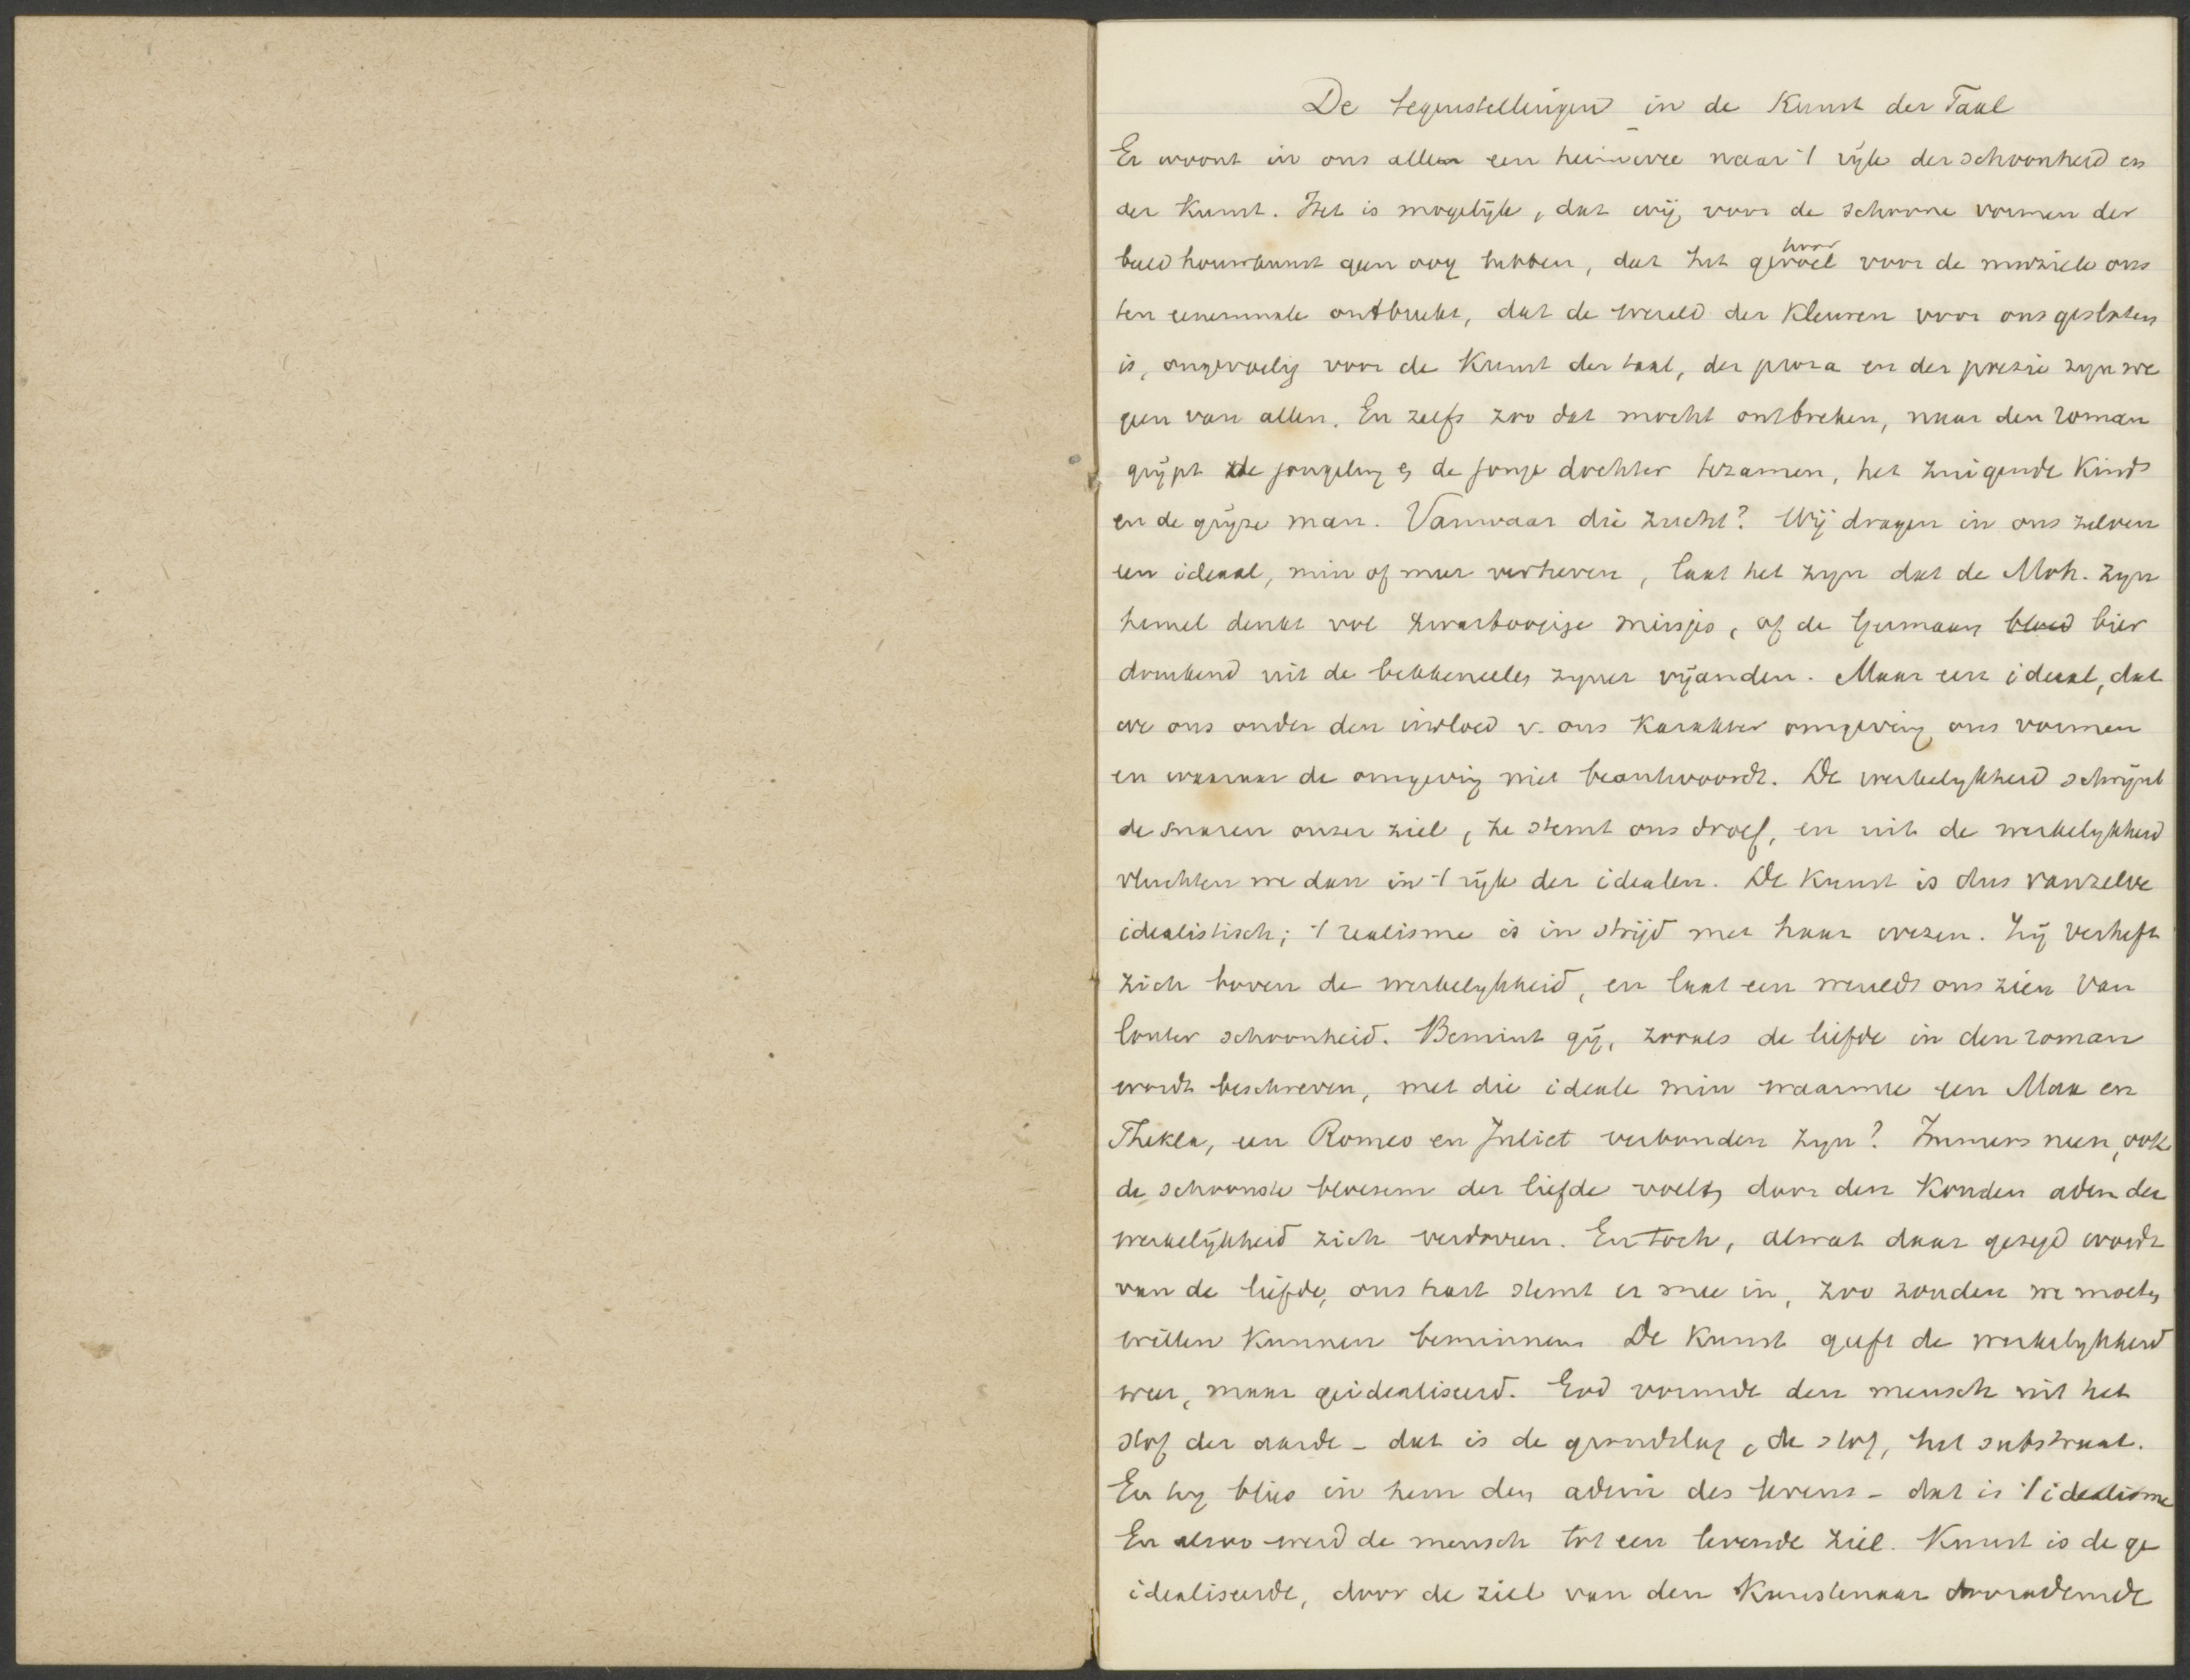 De tegenstellingen in de Kunst der Taal
Er woont in ons allen een heimwee naar 't rijk der schoonheid en
der Kunst. Het is mogelijk, dat wij voor de schoone vormen der
beeldhouwkunst geen oog hebben, dat het gevoel hoor voor de muziek ons
ten eenenmale ontbreekt, dat de wereld der kleuren voor ons gesloten
is, ongevoelig voor de Kunst der taal, der proza en der poezie zyn we
geen van allen. En zelfs zoo dat mocht ontbreken, naar den roman
grijpt de jongeling en de jonge dochter tezamen, het zuigende Kind
en de grijze man. Vanwaar die zucht? Wij dragen in ons zelven
een ideaal, min of meer verheven, laat het zyn dat de Moh. zyn
hemel denkt vol zwartoogige meisjes, of de Germaan bloed bier
drinkend uit de bekkeneelen zyner vijanden. Maar een ideaal, dat
we ons onder den invloed v. ons Karakter omgeving ons vormen
en waaraan de omgeving niet beantwoordt. De werkelykheid schrijnt
de snaren onzer ziel, ze stemt ons droef, en uit de werkelykheid
vluchten we dan in 't rijk der idealen. De Kunst is dus vanzelve
idealistisch; 't realisme is in strijd met haar wezen. Zij verheft
zich boven de werkelykheid, en laat een wereld ons zien van
louter schoonheid. Bemint gij, zooals de liefde in den roman
wordt beschreven, met die ideale min waarmee een Max en
Thekla, een Romeo en Juliet verbonden zyn? Immers neen, ook
de schoonste bloesem der liefde voelt door den Kouden adem der
werkelijkheid zich verdorren. En toch, alwat daar gezegd wordt
van de liefde, ons hart stemt er mee in, zoo zouden we moeten
willen Kunnen beminnen. De Kunst geeft de werkelykheid
weer, maar geidealiseerd. God vormde den mensch uit het
stof der aarde - dat is de grondslag, de stof, het substraat.
En hy blies in hem den adem des levens - dat is 't idealisme
En alzoo werd de mensch tot een levende ziel. Kunst is de ge
idealiseerde, door de ziel van den Kunstenaar doorademde